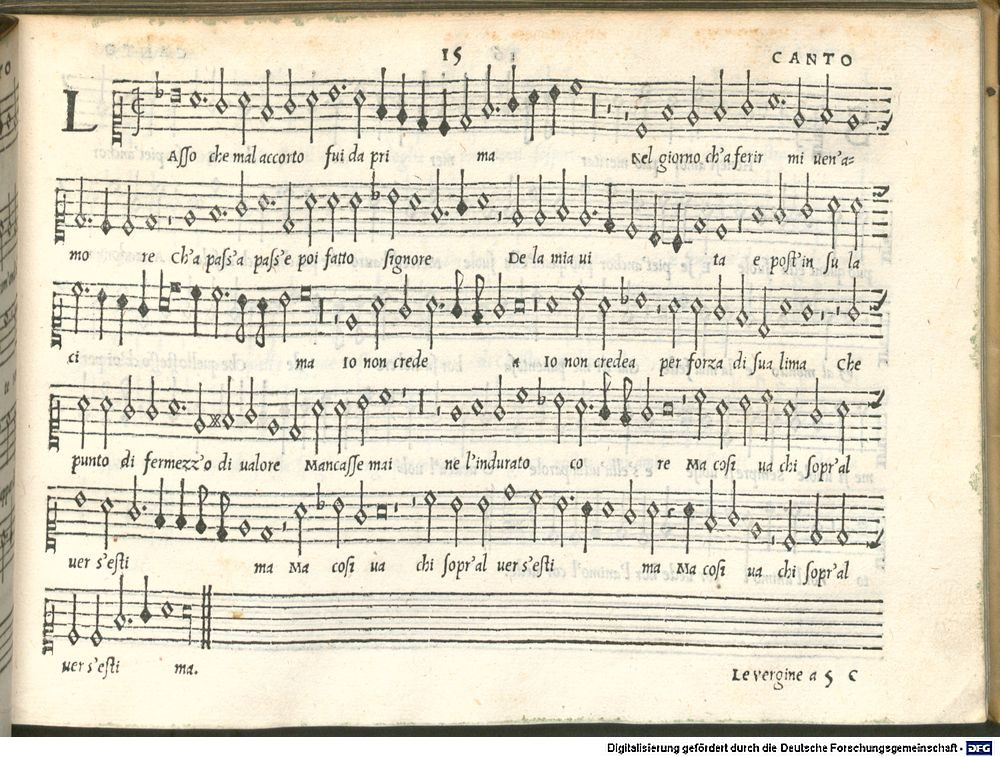 15 CANTO
L ASso che mal accorto fui da pri ma Nel giorno ch'a ferir mi uen'a=
mo re Ch'a pass'a pass'e poi fatto signore De la mia ui ta e post'in su la
ci ma Io non crede a Io non credea per forza di sua lima Che
punto di fermezz'o di ualore Mancasse mai ne l'indurato co re Ma cosi ua chi sopr'al
uer s'esti ma Ma cosi ua chi sopr'al uer s'esti ma Ma cosi ua chi sopr'al
uer s'esti ma.
Le vergine a 5 C
Digitalisierung gefördert durch die Deutsche Forschungsgemeinschaft - DFG